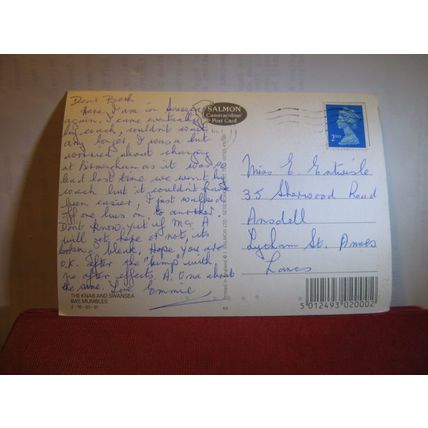 Dear Beth
Here I am in Swansea
again. I came eventually
by coach, couldn't wait
any longer. I was a bit
worried about changing
at Birmingham as it was so
bad last time we went by
coach but it couldn't have
been easier, I just walked
off one bus on to another.
Dont know yet if Mc A
will get hope or not, its
looking bleak. Hope you are
O.K. after the "bump" with
no after effects. A. One about
the same. Love Emmie
THE KNAB AND SWANSEA
BAY, MUMBLES
2-16-03-01
SALMON
Cameracolour
Post Card
2ND
Miss E. Entwisle
35 Sherwood Road
Ansdell
Lytham St. Annes
Lancs
5 012493 020002